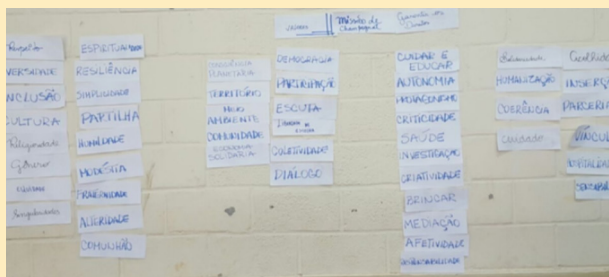 Missão de
Champagnat
Garantia de
VERSIDADE
NCLUSÃO
CULTURA
Religiosidade
Gênero
ESPIRITUALIDADE
RESILIÊNCIA
SIMPLICIDADE
PARTILHA
HUMILDADE
MODÉSTIA
FRATERNIDADE
ALTERIDADE
COMUNHÃO
TERRITÓRIO
MEIO
AMBIENTE
COMUNIDADE
ECONOMIA
SOLIDÁRIA
DEMOCRACIA
PARTICIPAÇÃO
ESCUTA
COLETIVIDADE
DIÁLOGO
CUIDAR E
EDUCAR
AUTONOMIA
PROTAGONISMO
CRITICIDADE
SAÚDE
INVESTIGAÇÃO
CRIATIVIDADE
BRINCAR
MEDIAÇÃO
AFETIVIDADE
HUMANIZAÇÃO
COERÊNCIA
Cuidado
INSERÇÃ
PARCERIA
VÍNCUL